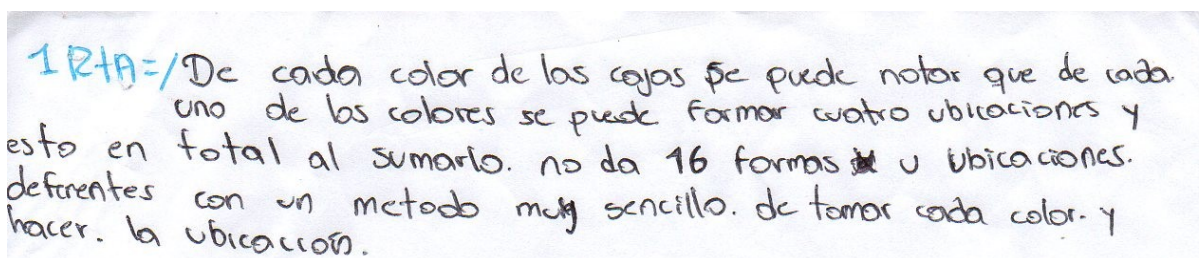 1 RtA=/De cada color de las cajas se puede notar que de cada.
uno de los colores se puede formar cuatro ubicaciones y
esto en total al sumarlo. no da 16 formas u ubicaciones.
deferentes con un metodo muy sencillo. de tomar cada color. y
hacer. la ubicaccion.